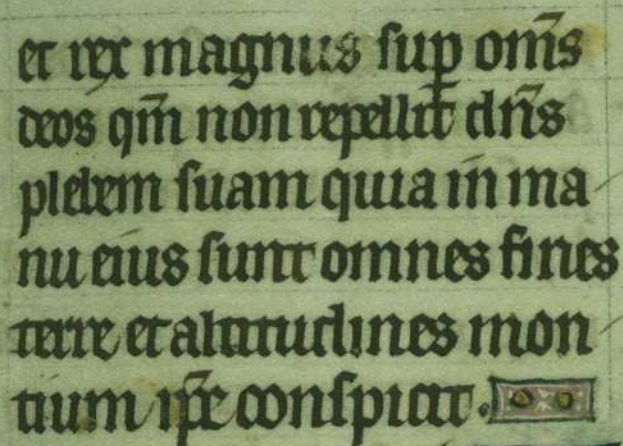 et rex magnus sup̲ om̅s
deos qm̅ non repellit dn̅s
plebem suam quia in ma
nu eius sunt omnes fines
terre et altitudines mon
tium ip̅e conspicit.